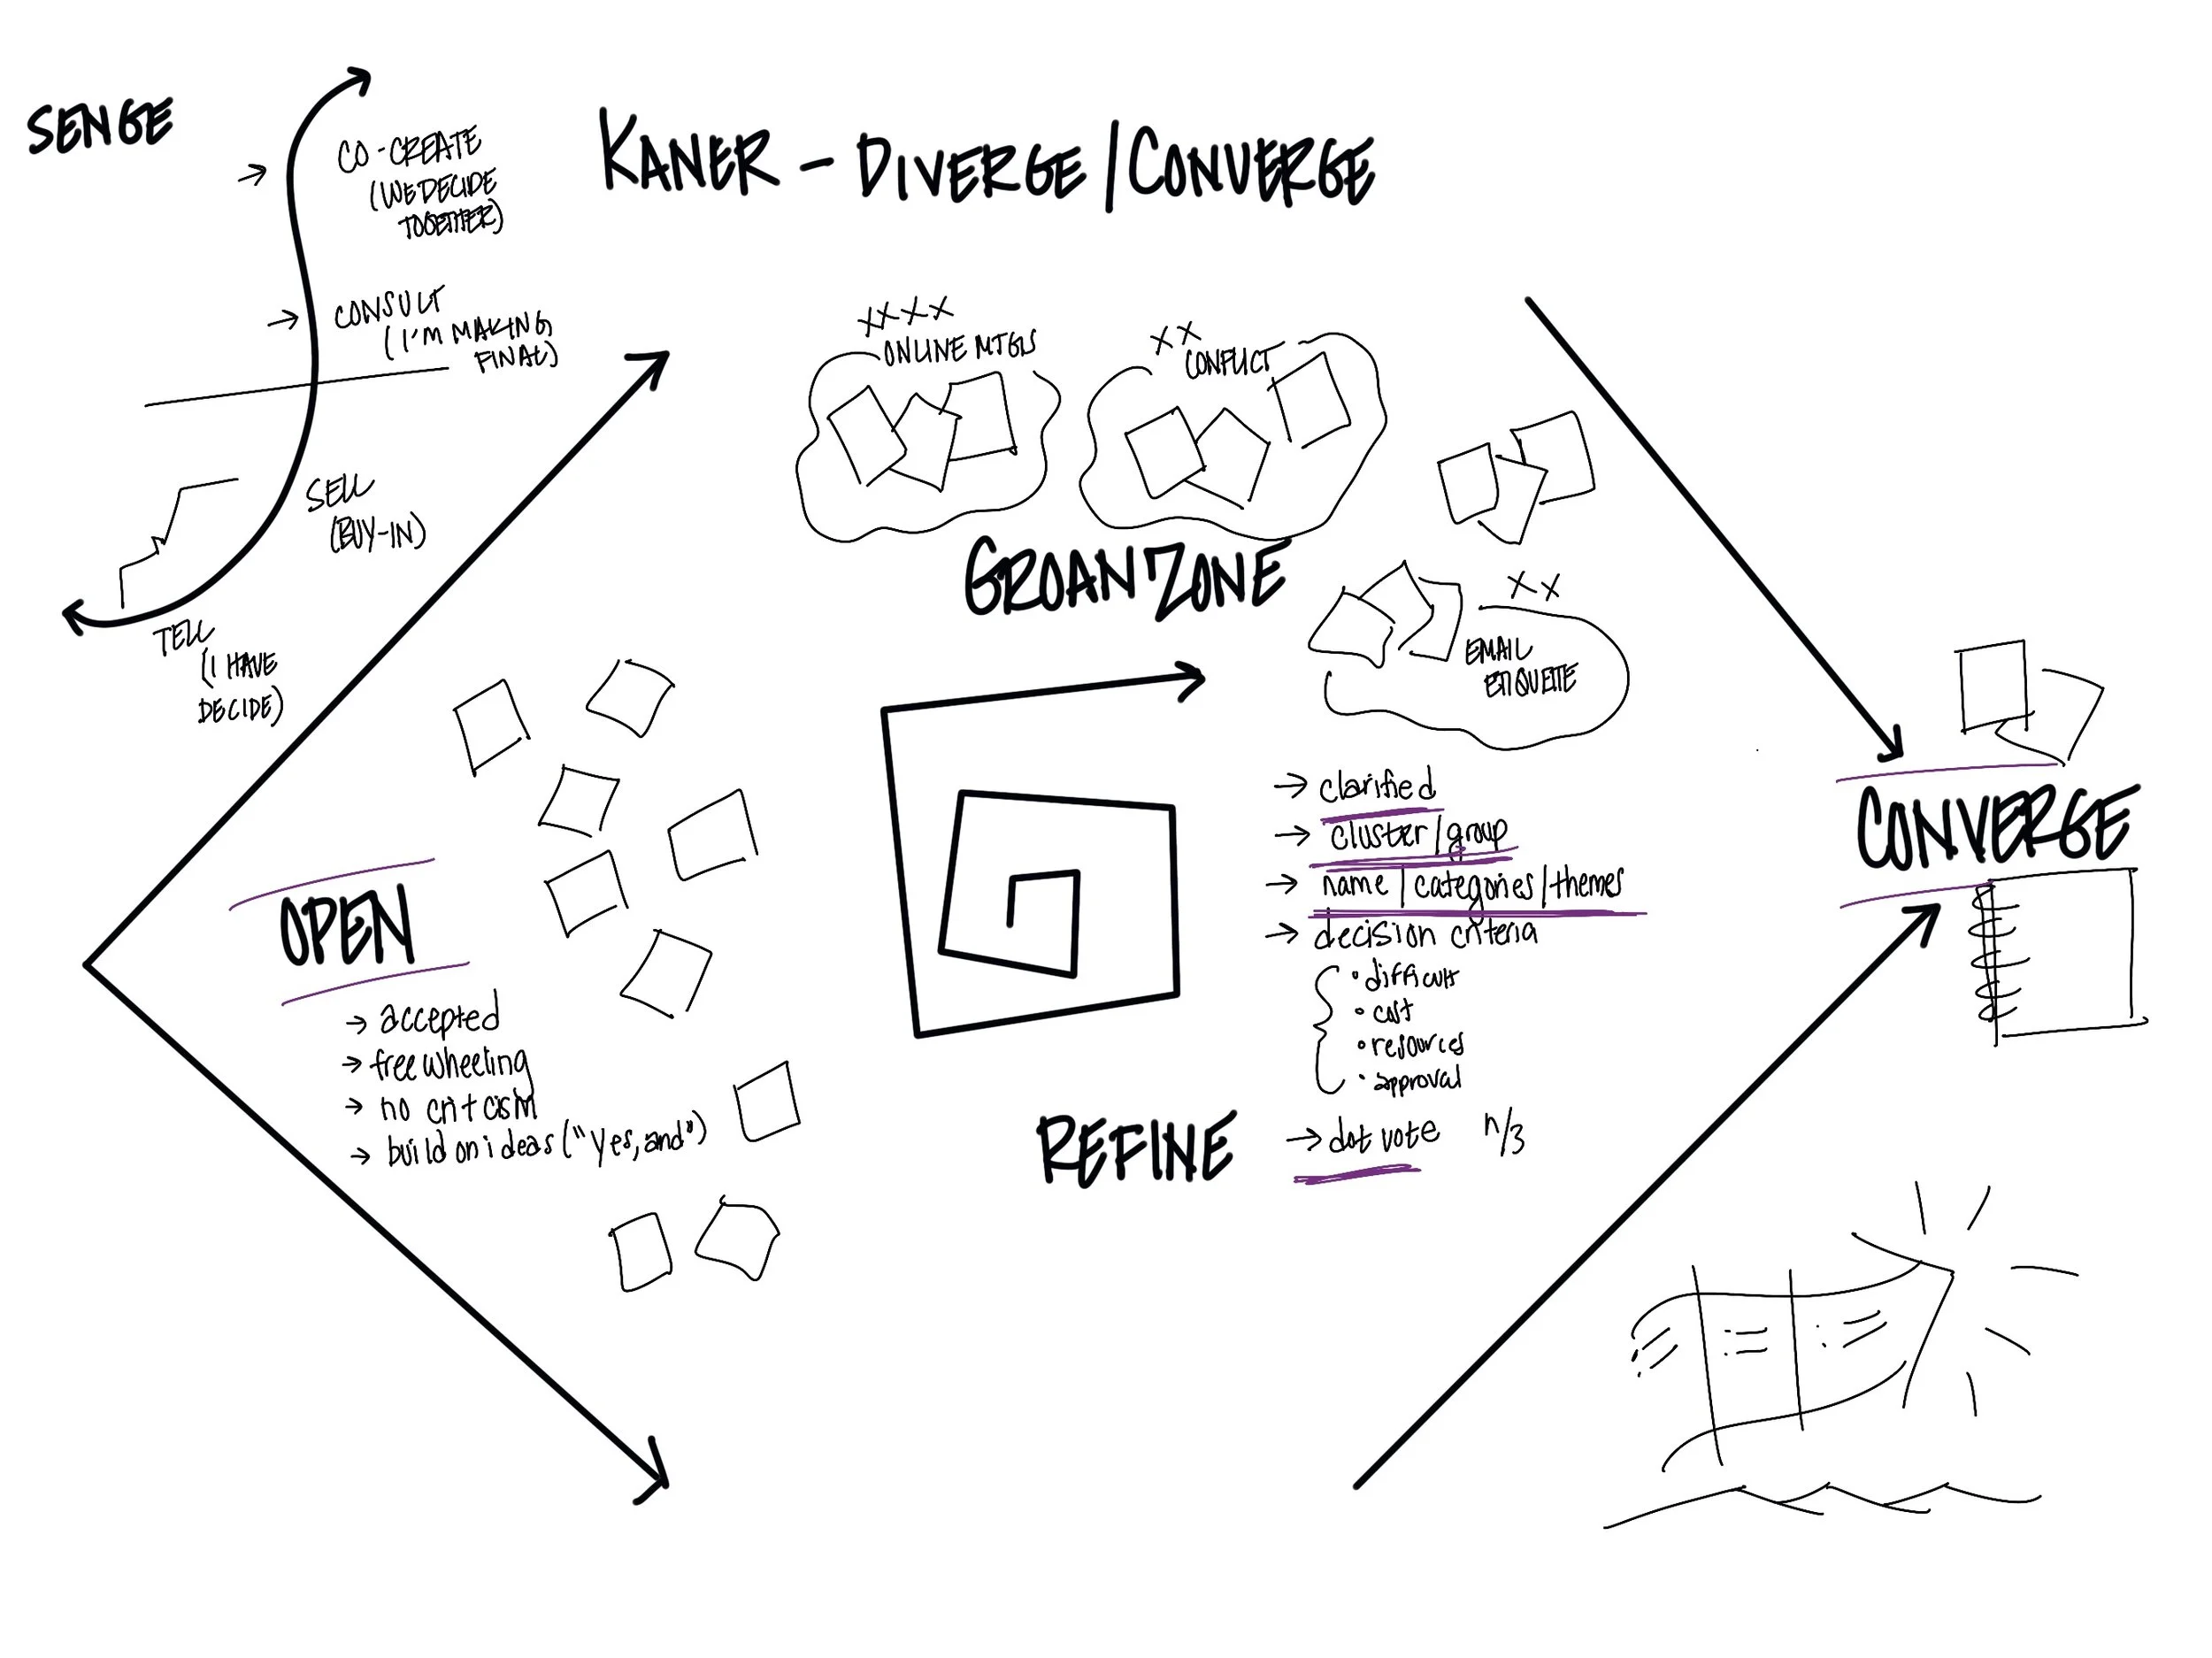 SENGE
CO-CREATE
(WE DECIDE
TOGETHER)
CONSULT
(I'M MAKING
FINAL)
SELL
(BUY-IN)
TELL
(I HAVE
DECIDE)
KANER - DIVERGE/CONVERGE
XXXX
ONLINE MTGS
XX
CONFLICT
GROAN ZONE
XX
EMAIL
ETIQUETTE
OPEN
→ accepted
→ freewheeling
→ no criticism
→ build on ideas ("yes, and")
→ clarified
→ cluster/group
→ name/categories/themes
→ decision criteria
• difficult
• cost
• resources
• approval
REFINE
→ dot vote n/3
CONVERGE